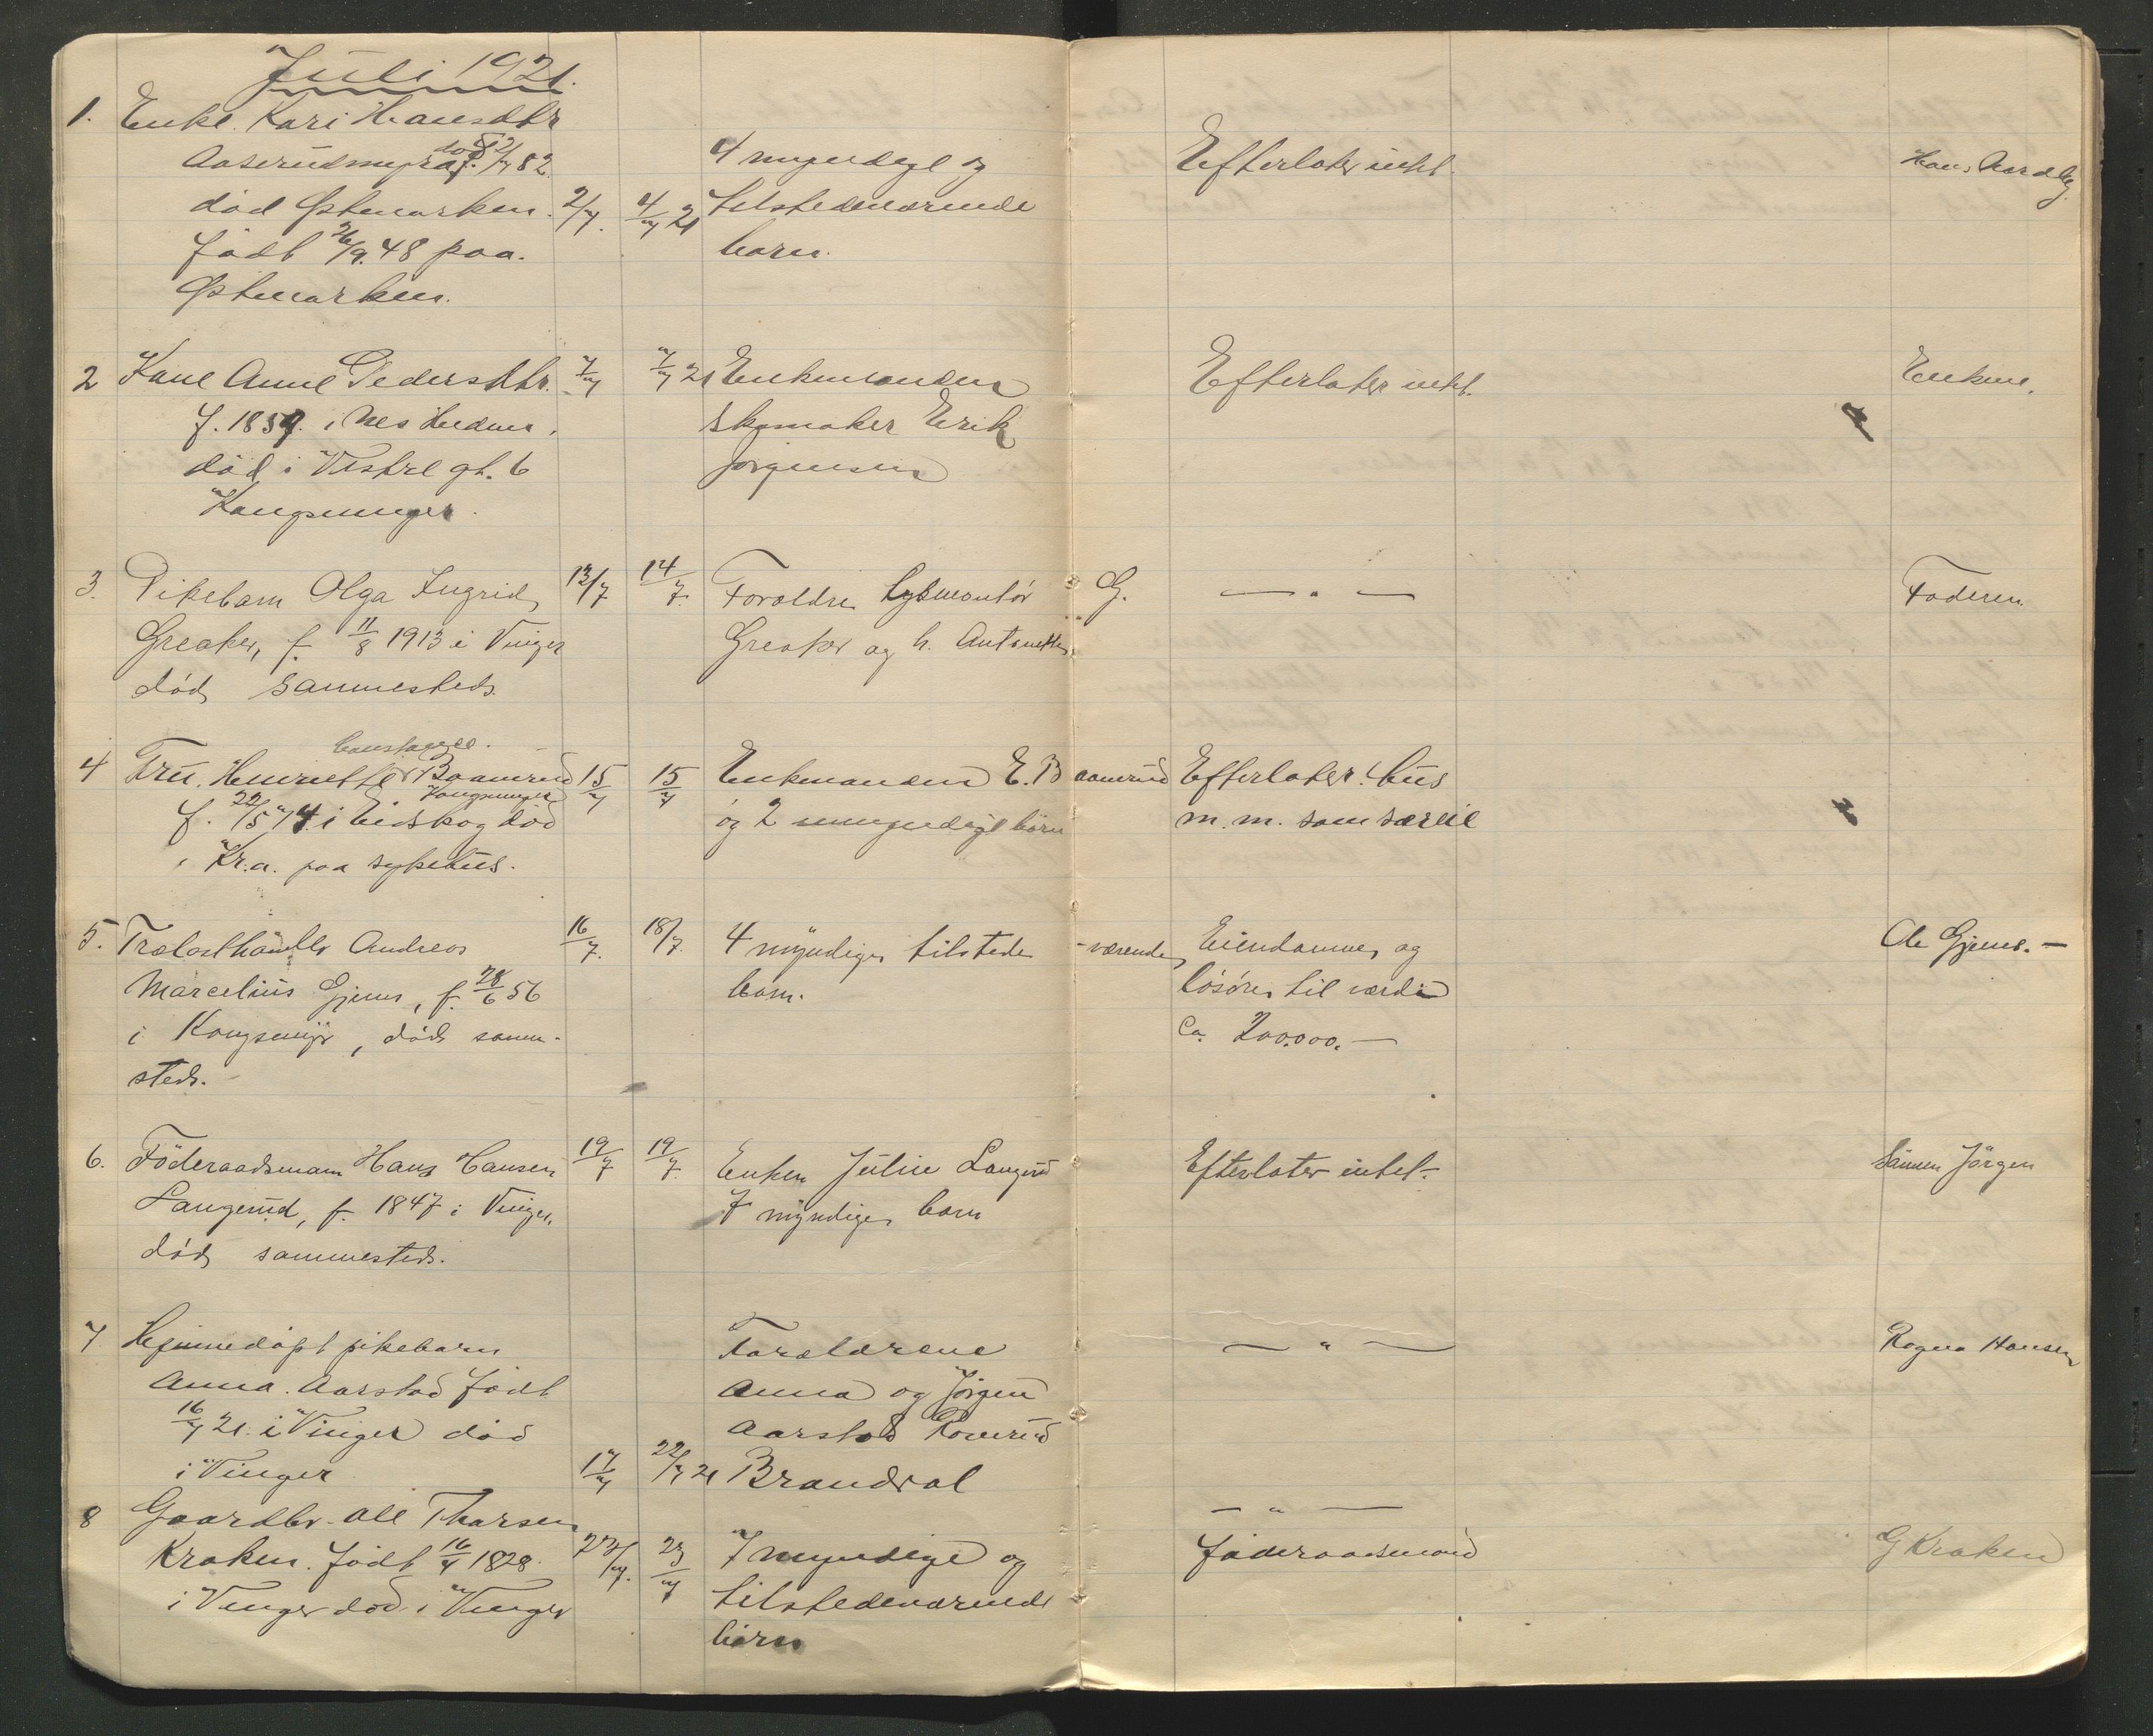 Juli 1921.
1. Enke. Kari Hansdtr
Aaserudmyra
død Østmarken. 2/7. 4/7 21
født 26/9. 48 paa.
Østmarken.
4 myndige og
tilstedeværende
barn.
Efterlater intet.
2 Kone Anne Pedersdtr. 7/7 7/7 21
f. 1859. i Nes Hedm.
død i Vestre gt. 6
Kongsvinger.
Enkemanden
Skomaker Erik
Jørgensen
Efterlater intet.
Enkem.
3. Pikebarn Olga Ingrid 13/7 14/7.
Greaker, f. 11/8 1913 i Vinger
død sammesteds.
Foraldre Lysmontør G.
Greaker og h. Antonette
— " —
Faderen.
4 Fru. Henriette Baamrud 15/7 15/7
Kongsvinger
f. 22/5 74 i Eidskog død
i Kr.a. paa sykehus.
Enkemanden E. Baamrud
og 2 umyndige børn
Efterlater hus
m.m. som særeie
5. Trælasthandler Andreas 16/7. 18/7.
Marcelius Gjems, f. 28/6 56
i Kongsvinger, død samme-
steds.
4 myndige tilstede-værende
barn.
Eiendomme og
løsøre til værdi
Ca. 200.000.—
Ole Gjems.—
6. Föderaadsmann Hans Hansen 19/7 19/7.
Langerud, f. 1847 i Vinger,
død sammesteds.
Enken Julie Langerud
7 myndige barn
Efterlater intet.-
Sønnen Jörgen
7 Hjemmedøpt pikebarn
Anna. Aarstad født
16/7 21. i Vinger død
i Vinger 17/7 22/7 21
Foreldrene
Anna og Jörgen
Aarstad
Brandval
— " —
Ragna Hansen
8 Gaardbr. Ole Tharsen
Kroken. født 16/4 1828. 22/7. 23/7
i Vinger død i Vinger
7 myndige og
tilstedeværende
børn
— " —
føderaadsmand
G Kroken